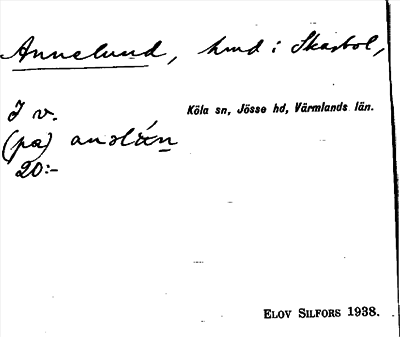 Annelund, hmd i Skarbol,
Köla sn, Jösse hd, Värmlands län.
I v.
(pa)
20:-
ELOV SILFORS 1938.